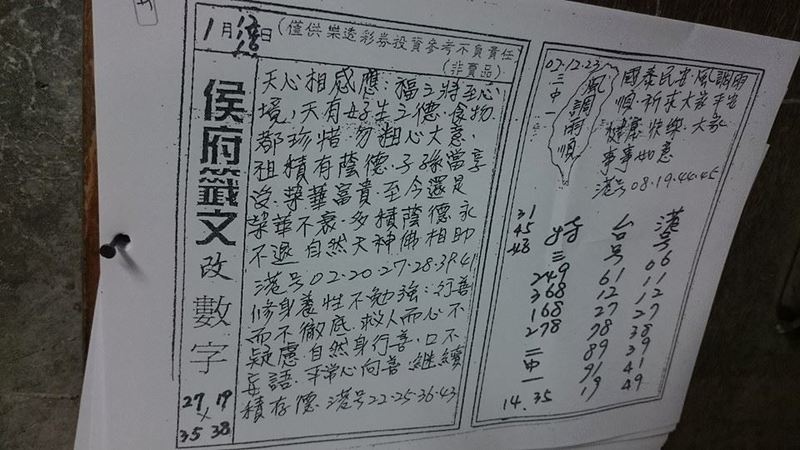 1月18日
(僅供樂透彩券投資參考不負責任
(非賣品)
侯府籤文
改數字
27 19
×
35 38
天心相感應:福之將至心
境,天有好生之德.食物
都珍惜.勿粗心大意.
祖積有蔭德.子孫當享
沒.榮華富貴.至今還是
榮華不衰.多積蔭德永
不退.自然天神佛相助
港号02·20·27·28·39·41
修身養性不勉強:行善
而不徹底.救人而心不
疑慮.自然身行善.口不
妄語.平常心向善.繼續
積存德.港号22·25·36·43
02.12.23
三中一
風調雨順
國泰民安.風調雨
順.祈求大家平安
健康快樂.大家
事事如意
港号08·19·44·45
港号
06
11
12
27
38
39
41
49
台号
61
12
27
78
89
91
19
特三
249
368
168
278
二中一
14.35
31
45
48